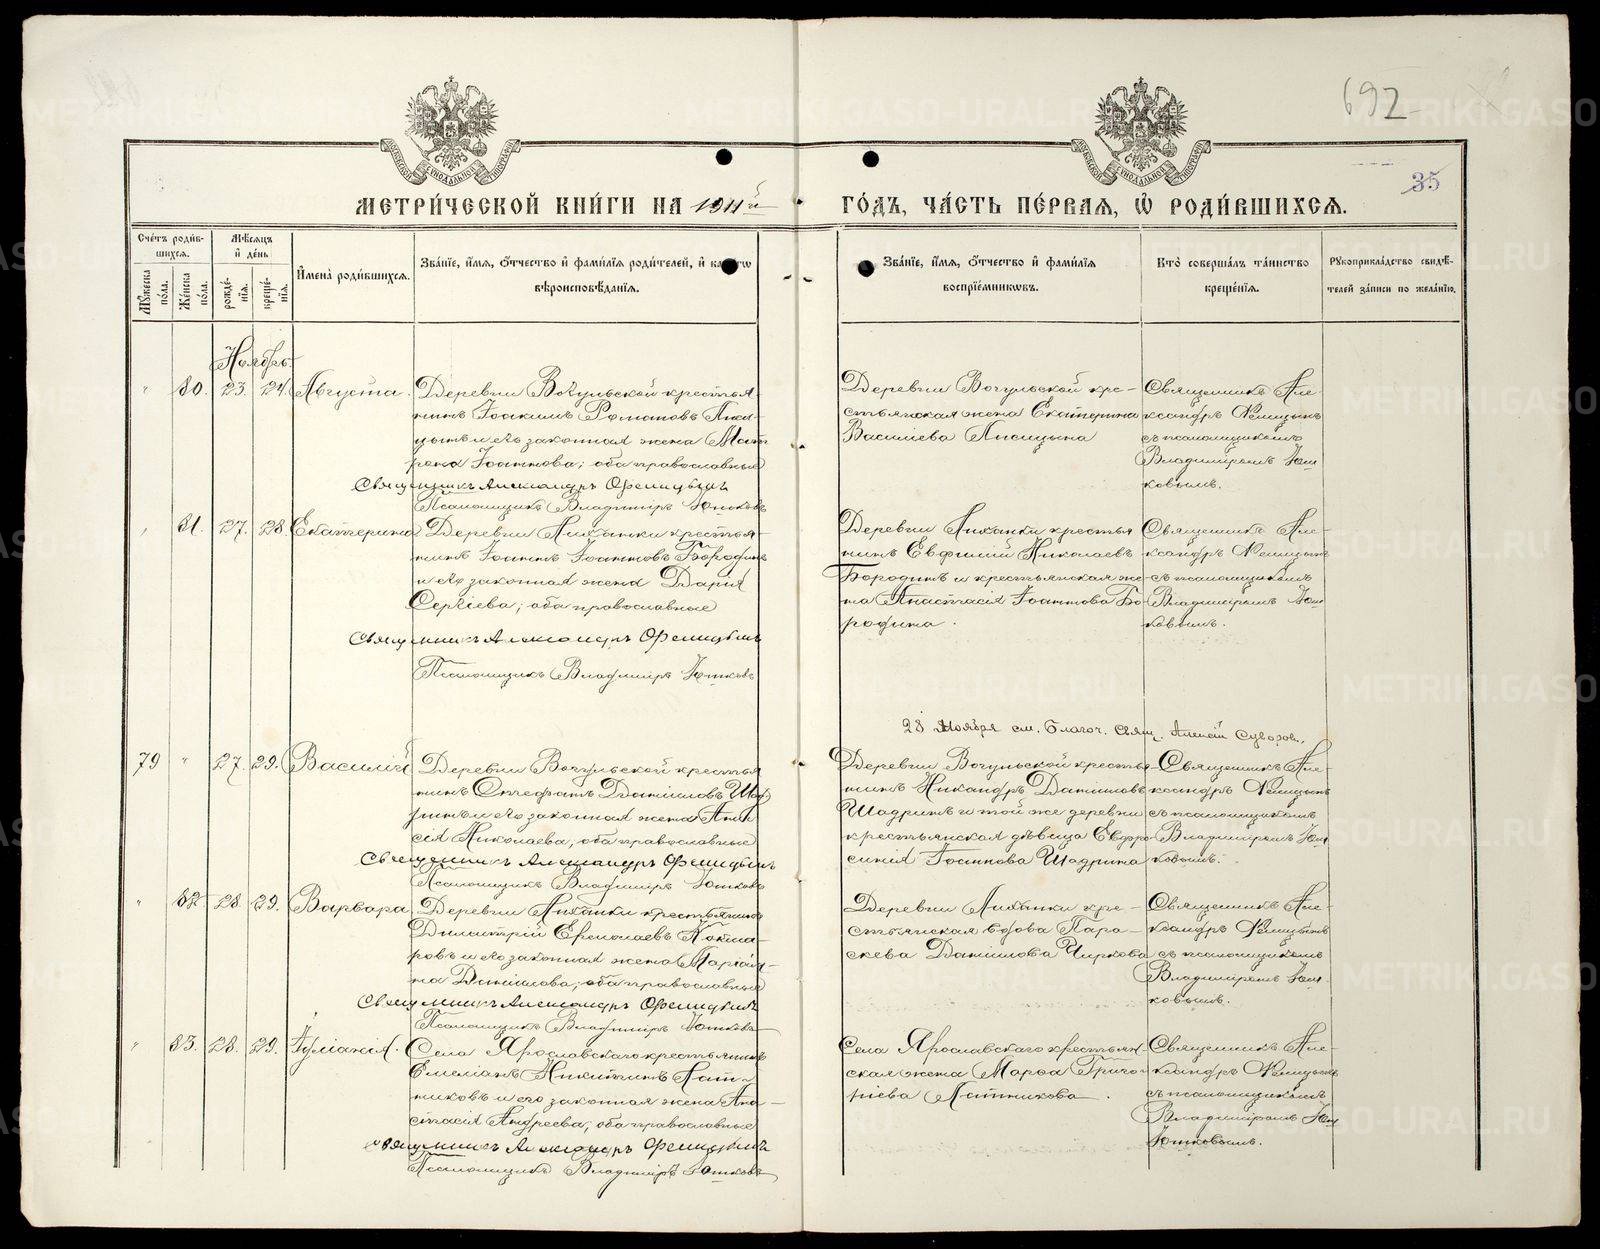 692
35
МЕТРИ́ЧЕСКОЙ КНИ́ГИ НА 1911й ГО́ДЪ, ЧА́СТЬ ПЕ́РВАЯ, Ѡ РОДИ́ВШИХСЯ.
Счетъ роди́в-
шихся.
Му́жеска по́ла.
Же́нска по́ла.
Мѣ́сяцъ
и де́нь
рожде́-
нія.
креще́-
нія.
Имена̀ роди́вшихся.
Зва́ніе, и́мя, о́тчество и фами́лія роди́телей, и
вѣроисповѣ́данія.
Зва́ніе, и́мя, о́тчество и фами́лія
воспріе́мниковъ.
Кто̀ соверша́лъ та́инство
креще́нія.
Рукоприкла́дство свидѣ́-
телей за́писи по жела́нію.
Ноябрь
" 80. 23. 24. Августа.
Деревни Вогульской крестья
нинъ Іоакимъ Романовъ
и его законная жена Мат
рона Іоаннова; оба православные
Священникъ Александръ
Псаломщикъ Владиміръ Юшковъ
Деревни Вогульской кре-
стьянская жена Екатерина
Василіева
Священникъ Але-
ксандръ
съ псаломщикомъ
Владиміромъ Юш
ковымъ.
" 81. 27. 28. Екатерина
Деревни крестья-
нинъ Іоаннъ Іоанновъ Бородинъ
и его законная жена Дарія
Сергіева; оба православные
Священникъ Александръ
Псаломщикъ Владиміръ Юшковъ
Деревни крестья
нинъ Евфимій Николаевъ
Бородинъ и крестьянская же-
на Анастасія Іоаннова Бо
родина.
Священникъ Але-
ксандръ
съ псаломщикомъ
Владиміромъ Юш
ковымъ.
28 Ноября см. Благоч. Свящ. Алексій Суворовъ.
79 " 27. 29. Василій
Деревни Вогульской крестья
нинъ Стефанъ Даниловъ Шад
ринъ и его законная жена
Николаева, оба православные
Священникъ Александръ
Псаломщикъ Владиміръ Юшковъ
Деревни Вогульской крестья
нинъ Никандръ Даниловъ
Шадринъ и той же деревни
крестьянская дѣвица Евфро
синія Іоаннова Шадрина
Священникъ Але-
ксандръ
съ псаломщикомъ
Владиміромъ Юш
ковымъ.
" 82 28. 29. Варвара.
Деревни крестьянинъ
Димитрій Ермолаевъ
и его законная жена
Данилова, оба православные
Священникъ Александръ
Псаломщикъ Владиміръ Юшковъ
Деревни кре-
стьянская вдова Пара-
скева Данилова Чиркова
Священникъ Але-
ксандръ
съ псаломщикомъ
Владиміромъ Юш
ковымъ.
" 83. 28. 29. Іуліанія.
Села Ярославскаго крестьянинъ
Емеліанъ Никитинъ Лат-
никовъ и его законная жена Ана-
стасія Андреева, оба православные
Священникъ Александръ
Псаломщикъ Владиміръ Юшковъ
Села Ярославскаго крестьян
ская жена Марѳа Григо-
ріева Латникова.
Священникъ Але-
ксандръ
съ псаломщикомъ
Владиміромъ Юш
Юшковымъ.
METRIKI.GASO-URAL.RU